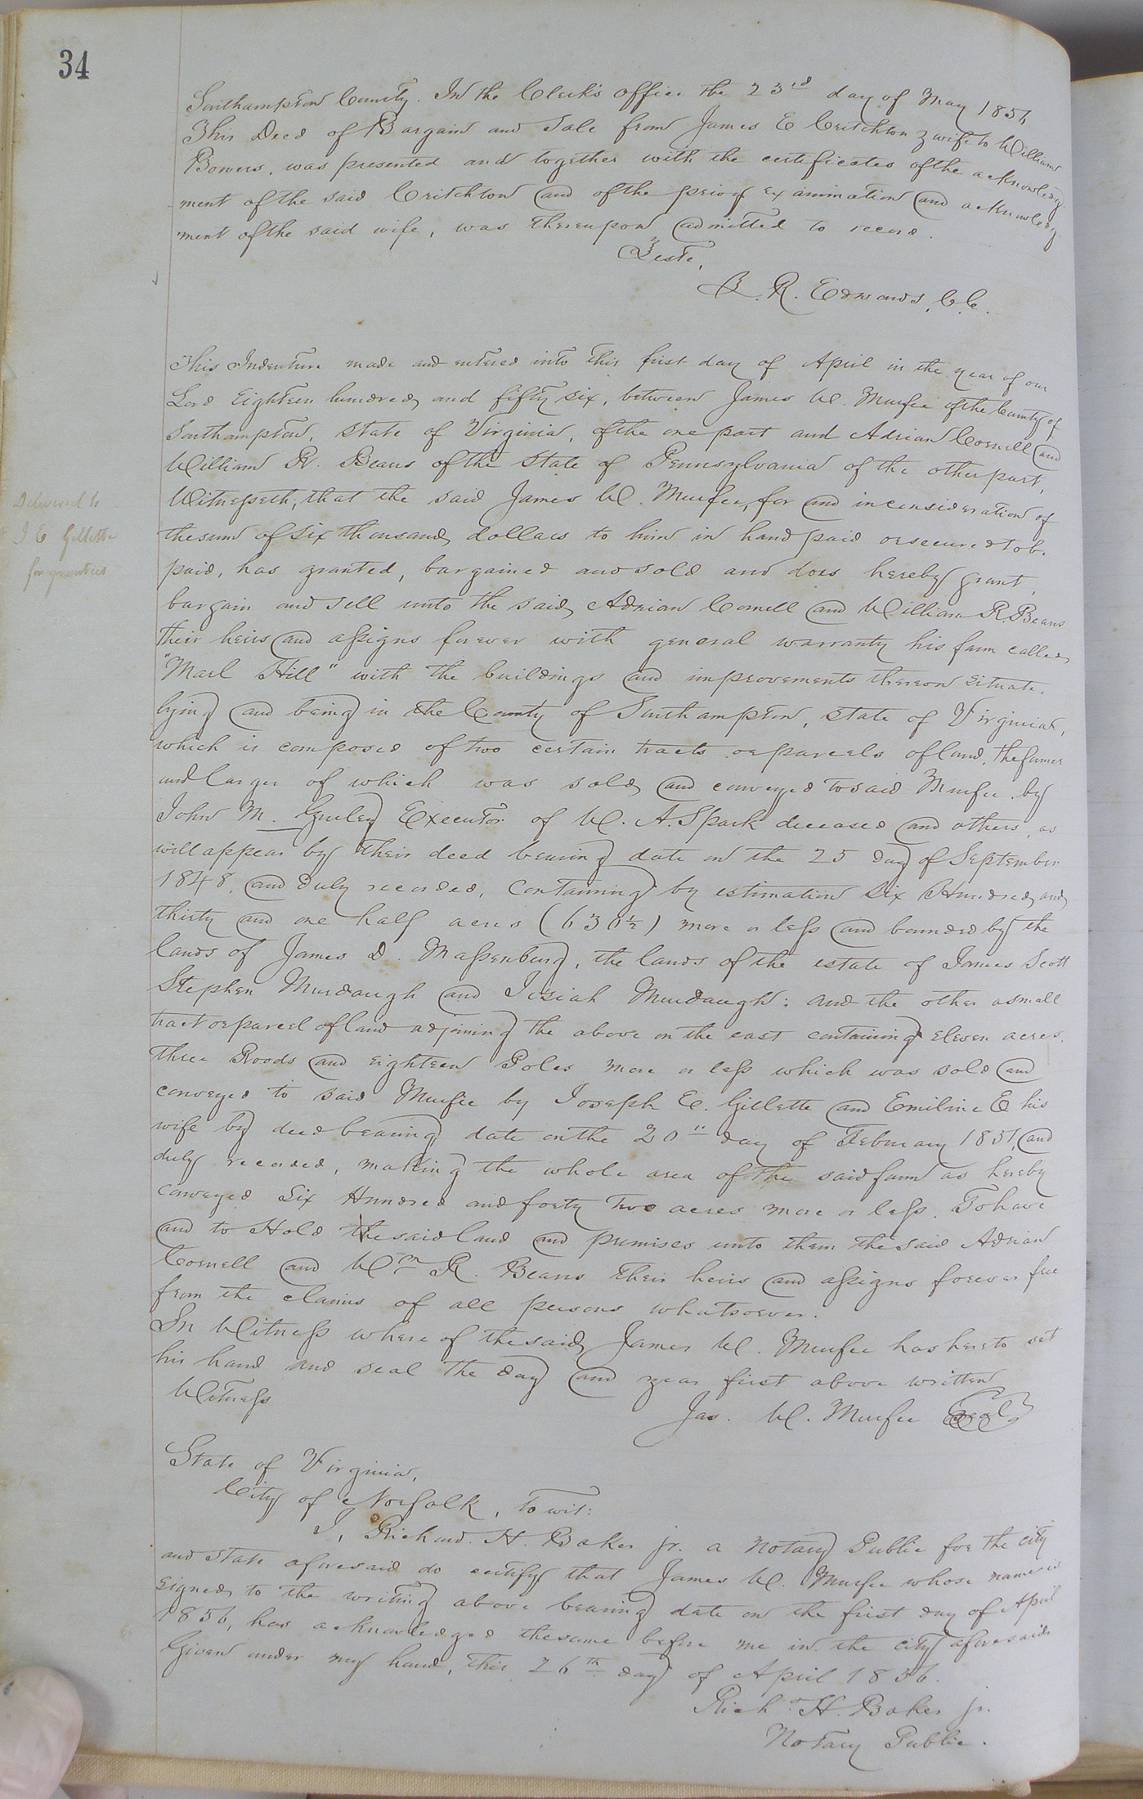 34
Southampton County. In the Clerk's office the 23rd day of May 1856
This Deed of Bargain and Sale from James E Critchton & wife to William
Bowers, was presented and together with the certificates of the acknowledg-
ment of the said Critchton and of the privy examination and acknowledg
ment of the said wife, was thereupon admitted to record.
Teste,
L. R. Edwards, C.C.
This Indenture made and entered into this first day of April in the year of our
Lord Eighteen hundred and fifty six, between James W. Murfee of the County of
Southampton, State of Virginia, of the one part and Adrian Cornell and
William R. Beans of the State of Pennsylvania of the other part,
Witnesseth, that the said James W. Murfee, for and in consideration of
Delivered to
the sum of six thousand dollars to him in hand paid or secured to be
J E Gillette
paid, has granted, bargained and sold and does hereby grant,
for grantees
bargain and sell unto the said Adrian Cornell and William R Beans
their heirs and assigns forever with general warranty his farm called
"Marl Hill" with the buildings and improvements thereon situate.
lying and being in the County of Southampton, State of Virginia,
which is composed of two certain tracts or parcels of land, the former
and larger of which was sold and conveyed to said Murfee by
John M. Gurley Executor of W. A. Spark deceased and others, as
will appear by their deed bearing date on the 25 day of September
1848, and duly recorded, containing by estimation Six Hundred and
thirty and one half acres (630½) more or less and bounded by the
lands of James D. Massenburg, the lands of the estate of James Scott
Stephen Murdaugh and Josiah Murdaugh: and the other a small
tract or parcel of land adjoining the above on the east containing eleven acres.
three Roods and eighteen Poles more or less which was sold and
conveyed to said Murfee by Joseph E. Gillette and Emiline E his
wife by deed bearing date on the 20" day of February 1851 and
duly recorded, making the whole area of the said farm as hereby
conveyed Six Hundred and forty Two acres more or less. To have
and to Hold the said land and premises unto them the said Adrian
Cornell and Wm R. Beans their heirs and assigns forever free
from the claims of all persons whatsoever.
In Witness where of the said James W. Murfee has hereto set
his hand and seal the day and year first above written
Witness
Jas. W. Murfee Seal
State of Virginia,
City of Norfolk, to wit:
I, Richard. H. Baker jr. a Notary Public for the city
and state aforesaid do certify that James W. Murfee whose name is
signed to the writing above bearing date on the first day of April
1856, has acknowledged the same before me in the city aforesaid.
Given under my hand, this 26th day of April 1856.
Richd H. Baker jr.
Notary Public.